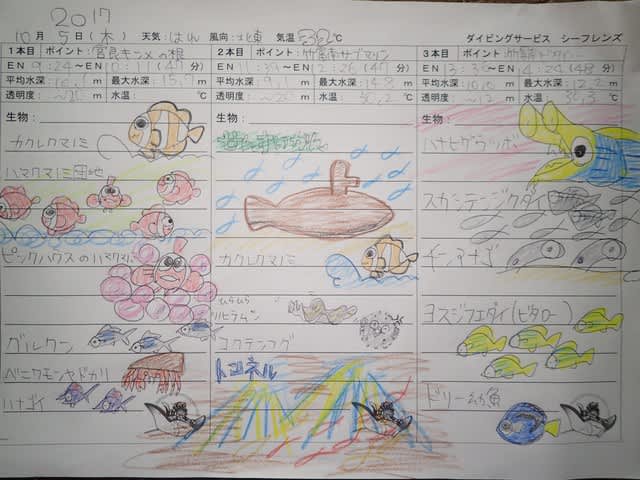 2017
10 月 5 日 (木) 天気: はれ 風向: 北東 気温 32 ℃ ダイビングサービス シーフレンズ
1本目 ポイント: 宮良キンメの根
EN 9:24~EN 10:11 (47分)
平均水深: m 最大水深: 15.7 m
透明度: ~20 m 水温: ℃
生物:
カクレクマノミ
ハマクマノミ団地
ピンクハウスのハマクマノミ
グルクン
ベニワモンヤドカリ
ハナゴイ
2本目 ポイント: 竹富南サブマリン
EN 11:39~EN 12:26 (47分)
平均水深: 9.1 m 最大水深: 14.8 m
透明度: ~20 m 水温: 30.2 ℃
生物:
カクレクマノミ
ひらひら
ヒラムシ
ヨウテンフグ
トンネル
3本目 ポイント: 竹富南
EN ~EN 14:29 (48分)
平均水深: 10.0 m 最大水深: 12.2 m
透明度: ~12 m 水温: 30.3 ℃
生物:
ハナヒゲウツボ
スカシテンジクダイ
チンアナゴ
ヨスジフエダイ(ビタロー)
ドリー幼魚